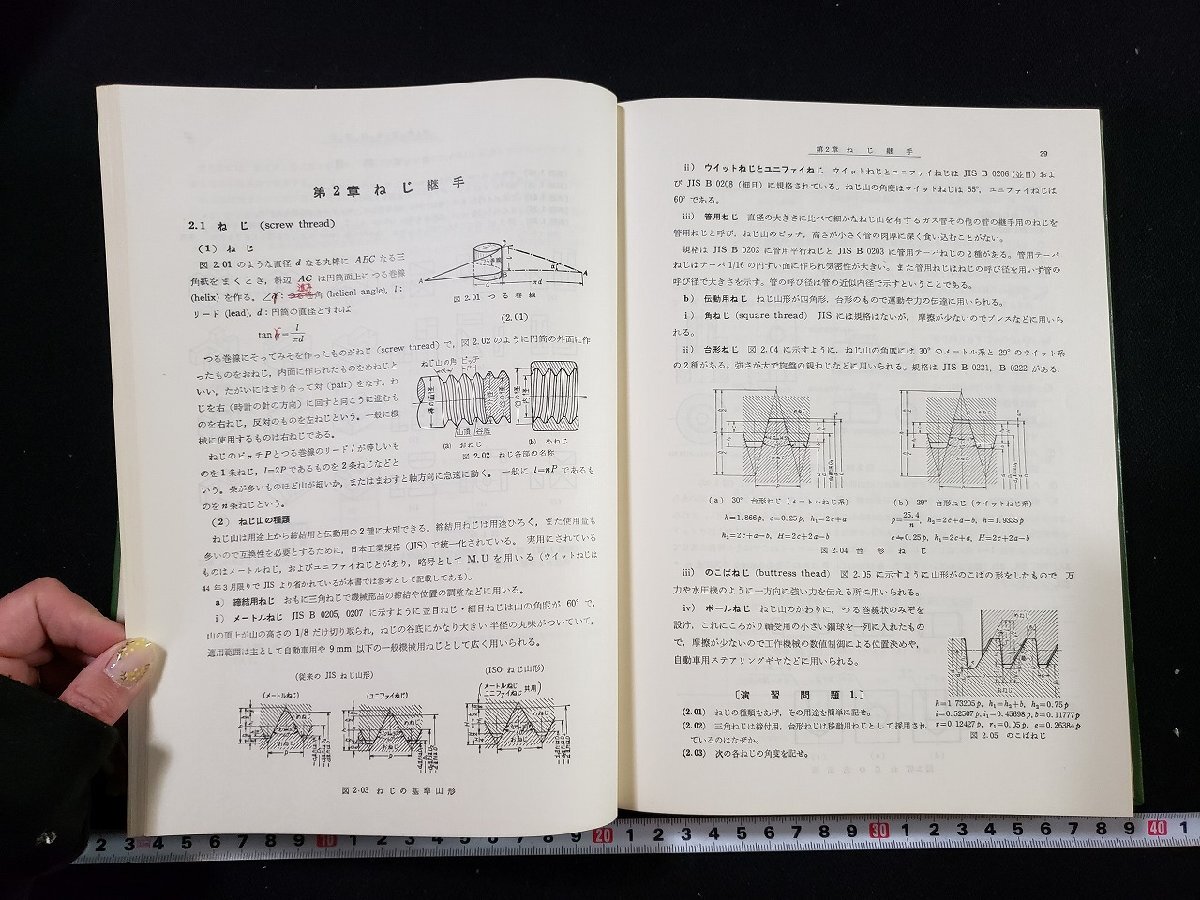 第2章 ねじ継手
2.1 ねじ (screw thread)
(1) ねじ
図 2.01 のような直径 d なる丸棒に ABC なる三
角紙をまくとき，斜辺 AC は円筒面上につる巻線
(helix) を作る。 角 (helical angle), l:
リード (lead), d:円筒の直径とすれば
図 2.01 つる巻線
(2.(1)
つる巻線にそってみぞを作ったものがねじ (screw thread) で，図 2.02 のように円筒の外面に作
ったものをおねじ，内面に作られたものをめねじと
いい，たがいにはまり合って対 (pair) をなす。わ
じを右 (時計の針の方向) に回すと向こうに進むも
のを右ねじ，反対のものを左ねじという。一般に機
械に使用するものは右ねじである。
ねじの山の角 ピッチ
山頂 谷底
(a) おねじ
(b) めねじ
図 2.02 ねじ各部の名称
ねじのピッチ P とつる巻線のリード l が等しいも
のを1条ねじ，l=2P であるものを2条ねじなどと
いう。条が多いものほど山が粗いか，またはまわすと軸方向に急速に動く。一般に l=nP であるも
のをn条ねじという。
(2) ねじ山の種類
ねじ山は用途上から締結用と伝動用の2種に大別できる。締結用ねじは用途ひろく，また使用量も
多いので互換性を必要とするために，日本工業規格 (JIS) で統一化されている。実用にされている
ものはメートルねじ，およびユニファイねじとがあり，略号として M, U を用いる (ウイットねじは
44年3月限りで JIS より省かれているが本書では参考として記載してある)。
a) 締結用ねじ おもに三角ねじで機械部品の締結や位置の調整などに用いる。
i) メートルねじ JIS B 0205, 0207 に示すように並目ねじ・細目ねじは山の角度が 60° で，
山の頂上が山の高さの 1/8 だけ切り取られ，ねじの谷底にかなり大きい半径の丸味がついていて，
適用範囲は主として自動車用や 9mm 以下の一般機械用ねじとして広く用いられる。
(従来の JIS ねじ山形)
(ISO ねじ山形)
(メートルねじ)
(ユニファイねじ)
(メートルねじ ユニファイねじ 共用)
図2・03 ねじの基準山形
第2章 ねじ継手
29
ii) ウイットねじとユニファイねじ ウイットねじとユニファイねじは JIS B 0206 (並目) およ
び JIS B 0208 (細目) に規格されている。ねじ山の角度はウイットねじは 55°，ユニファイねじは
60° である。
iii) 管用ねじ 直径の大きさに比べて細かなねじ山を有するガス管その他の管の継手用のねじを
管用ねじと呼び，ねじ山のピッチ，高さが小さく管の肉厚に深く食い込むことがない。
規格は JIS B 0202 に管用平行ねじと JIS B 0203 に管用テーパねじの2種がある。管用テーパ
ねじはテーパ 1/16 の円すい面に作られ気密性が大きい。また管用ねじはねじの呼び径を用いず管の
呼び径で大きさを示す。管の呼び径は管の近似内径で示すということである。
b) 伝動用ねじ ねじ山形が四角形，台形のもので運動や力の伝達に用いられる。
i) 角ねじ (square thread) JIS には規格はないが，摩擦が少ないのでプレスなどに用いら
れる。
ii) 台形ねじ 図 2.04 に示すように，ねじ山の角度には 30° のメートル系と 29° のウイット系
の2種がある。強さが大で旋盤の親ねじなどに用いられる。規格は JIS B 0221, B 0222 がある。
(a) 30° 台形ねじ (メートルねじ系)
(b) 29° 台形ねじ (ウイットねじ系)
h=1.866p, c=0.25p, h₁=2c+a
h₂=2c+a-b, H=2c+2a-b
図 2.04 台形ねじ
iii) のこばねじ (buttress thead) 図 2.05 に示すように山形がのこばの形をしたもので，万
力や水圧機のように一方向に強い力を伝える所に用いられる。
iv) ボールねじ ねじ山のかわりに，つる巻線状のみぞを
設け，これにころがり軸受用の小さい鋼球を一列に入れたもの
で，摩擦が少ないので工作機械の数値制御による位置決めや，
自動車用ステアリングギヤなどに用いられる。
図 2.05 のこばねじ
〔演習問題 1.〕
(2.01) ねじの種類をあげ，その用途を簡単に記せ。
(2.02) 三角ねじは締付用，台形ねじは移動用ねじとして採用され
ているのはなぜか。
(2.03) 次の各ねじの角度を記せ。